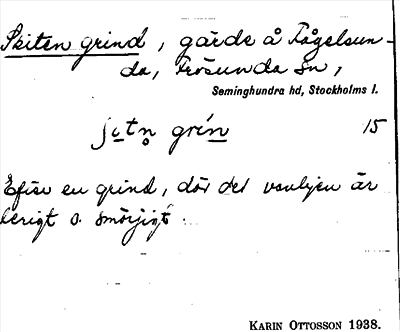 Skiten grind, gärde å Fågelsun-
da, Frösunda sn,
Seminghundra hd, Stockholms l.
grín 15
Efter en grind, där det vanligen är
lerigt o. smörjigt.
KARIN OTTOSSON 1938.